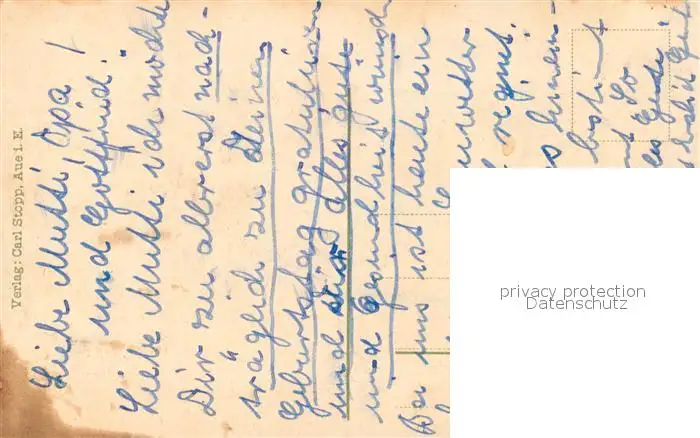 Liebe Mutti Opa!
und Gottfried!
Liebe Mutti ich möchte
Dir zu allererst nach-
träglich zu Deinem
Geburtstag gratulieren
und Dir alles gute
und Gesundheit wünschen
Bei uns ist heute ein
regnet.
So
Verlag: Carl Stopp, Aue i. E.
privacy protection
Datenschutz